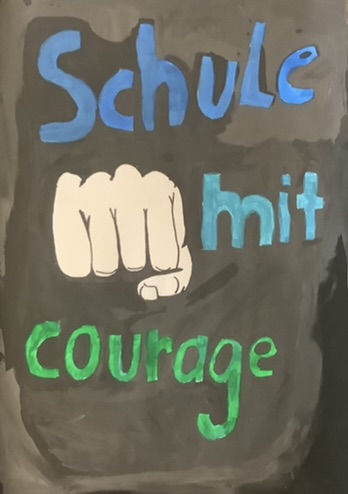 Schule
mit
courage